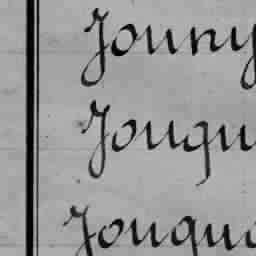 Jouny
Jouqu
Jouqua